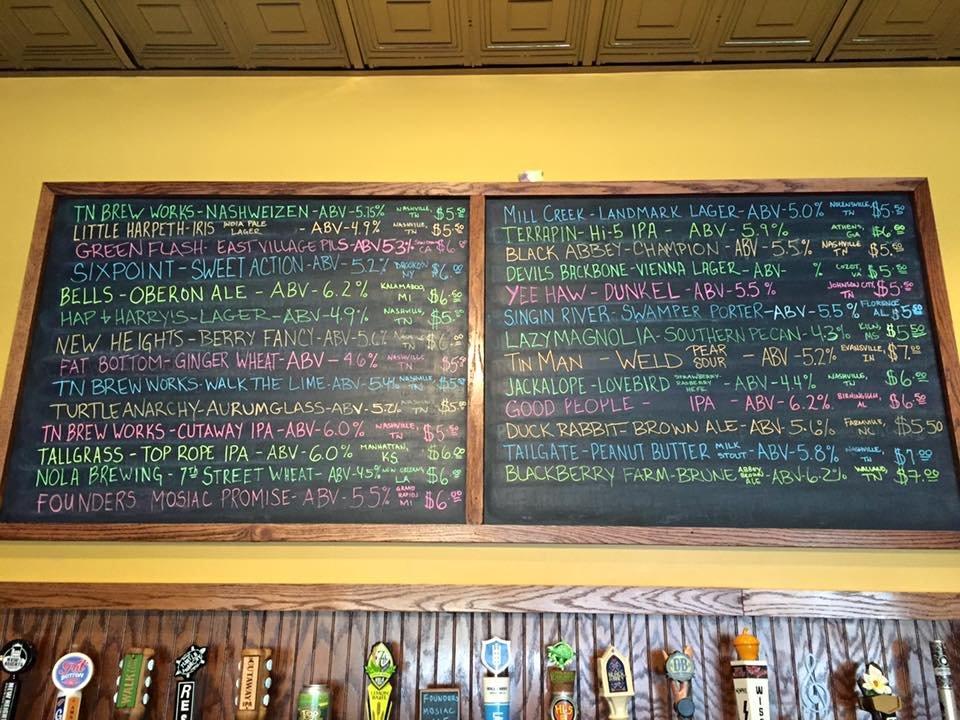 TN BREW WORKS-NASHWEIZEN-ABV-5.15% NASHVILLE, TN $5.50
LITTLE HARPETH-IRIS INDIA PALE LAGER - ABV-4.9% NASHVILLE, TN $5.50
GREEN FLASH-EAST VILLAGE PILS-ABV 5.3% CA $6.00
SIXPOINT-SWEET ACTION-ABV-5.2% BROOKLYN NY $6.00
BELLS-OBERON ALE-ABV-6.2% KALAMAZOO, MI $6.50
HAP & HARRY'S-LAGER-ABV-4.9% NASHVILLE, TN $5.50
NEW HEIGHTS-BERRY FANCY-ABV-5. NASHVILLE TN $6.00
FAT BOTTOM-GINGER WHEAT-ABV-4.6% NASHVILLE TN $5.50
TN BREW WORKS-WALK THE LIME-ABV-5.4% NASHVILLE, TN $5.50
TURTLE ANARCHY-AURUMGLASS-ABV-5.2% NASHVILLE TN $5.50
TN BREW WORKS-CUTAWAY IPA-ABV-6.0% NASHVILLE, TN $5.50
TALLGRASS-TOP ROPE IPA-ABV-6.0% MANHATTAN, KS $6.00
NOLA BREWING-7TH STREET WHEAT-ABV-4.5% NEW ORLEANS LA $6.00
FOUNDERS MOSIAC PROMISE-ABV-5.5% GRAND RAPIDS MI $6.00
MILL CREEK-LANDMARK LAGER-ABV-5.0% NOLENSVILLE, TN $5.50
TERRAPIN-Hi-5 IPA - ABV-5.9% ATHENS, GA $6.00
BLACK ABBEY-CHAMPION-ABV-5.5% NASHVILLE TN $5.50
DEVILS BACKBONE-VIENNA LAGER-ABV- % $5.50
YEE HAW-DUNKEL-ABV-5.5% JOHNSON CITY, TN $5.50
SINGIN RIVER-SWAMPER PORTER-ABV-5.5% FLORENCE AL $5.50
LAZY MAGNOLIA-SOUTHERN PECAN-4.3% KILN, MS $5.50
TIN MAN - WELD PEAR SOUR - ABV-5.2% EVANSVILLE, IN $7.00
JACKALOPE-LOVEBIRD STRAWBERRY RASBERRY HEFE - ABV-4.4% NASHVILLE, TN $6.00
GOOD PEOPLE - IPA - ABV-6.2% BIRMINGHAM, AL $6.50
DUCK RABBIT-BROWN ALE-ABV-5.6% FARMVILLE, NC $5.50
TAILGATE-PEANUT BUTTER MILK STOUT-ABV-5.8% NASHVILLE, TN $7.00
BLACKBERRY FARM-BRUNE ABBEY BROWN ALE-ABV-6.2% WALLAND, TN $7.00
Fat BOTTOM
WALK
RES
CUTAWAY IPA
FOUNDERS MOSIAC
DB
WIS